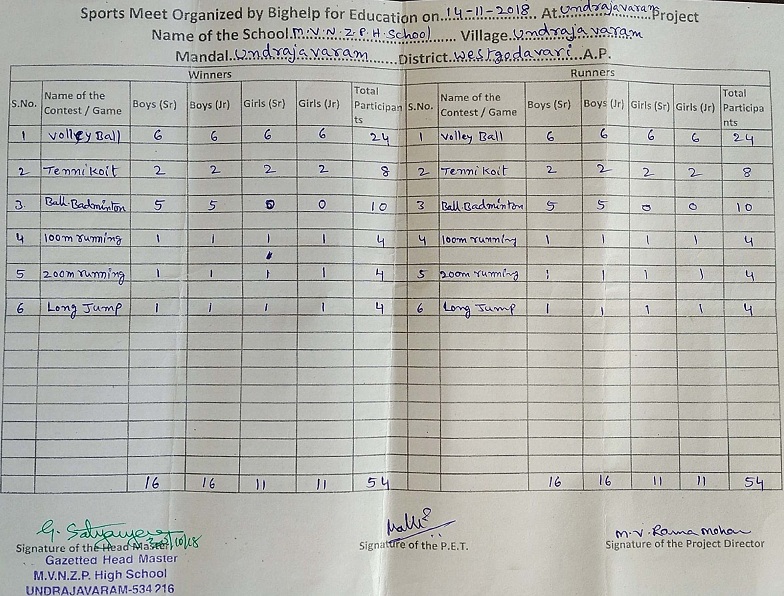 Sports Meet Organized by Bighelp for Education on..14-11-2018. At Undrajavaram Project
Name of the School.M.V.N.Z.P.H.School...... Village.Undrajavaram
Mandal.Undrajavaram.......District.westgodavari..A.P.
Winners Runners
S.No. Name of the Contest / Game Boys (Sr) Boys (Jr) Girls (Sr) Girls (Jr) Total Participan ts S.No. Name of the Contest / Game Boys (Sr) Boys (Jr) Girls (Sr) Girls (Jr) Total Participa nts
1 Volley Ball 6 6 6 6 24 1 Volley Ball 6 6 6 6 24
2 Tennikoit 2 2 2 2 8 2 Tennikoit 2 2 2 2 8
3 Ball Badminton 5 5 0 0 10 3 Ball Badminton 5 5 0 0 10
4 100m running 1 1 1 1 4 4 100m running 1 1 1 1 4
5 200m running 1 1 1 1 4 5 200m running 1 1 1 1 4
6 Long Jump 1 1 1 1 4 6 Long Jump 1 1 1 1 4
16 16 11 11 54 16 16 11 11 54
M.V. Rama Mohan
Signature of the Head Master Signature of the P.E.T. Signature of the Project Director
Gazetted Head Master
M.V.N.Z.P. High School
UNDRAJAVARAM-534 216